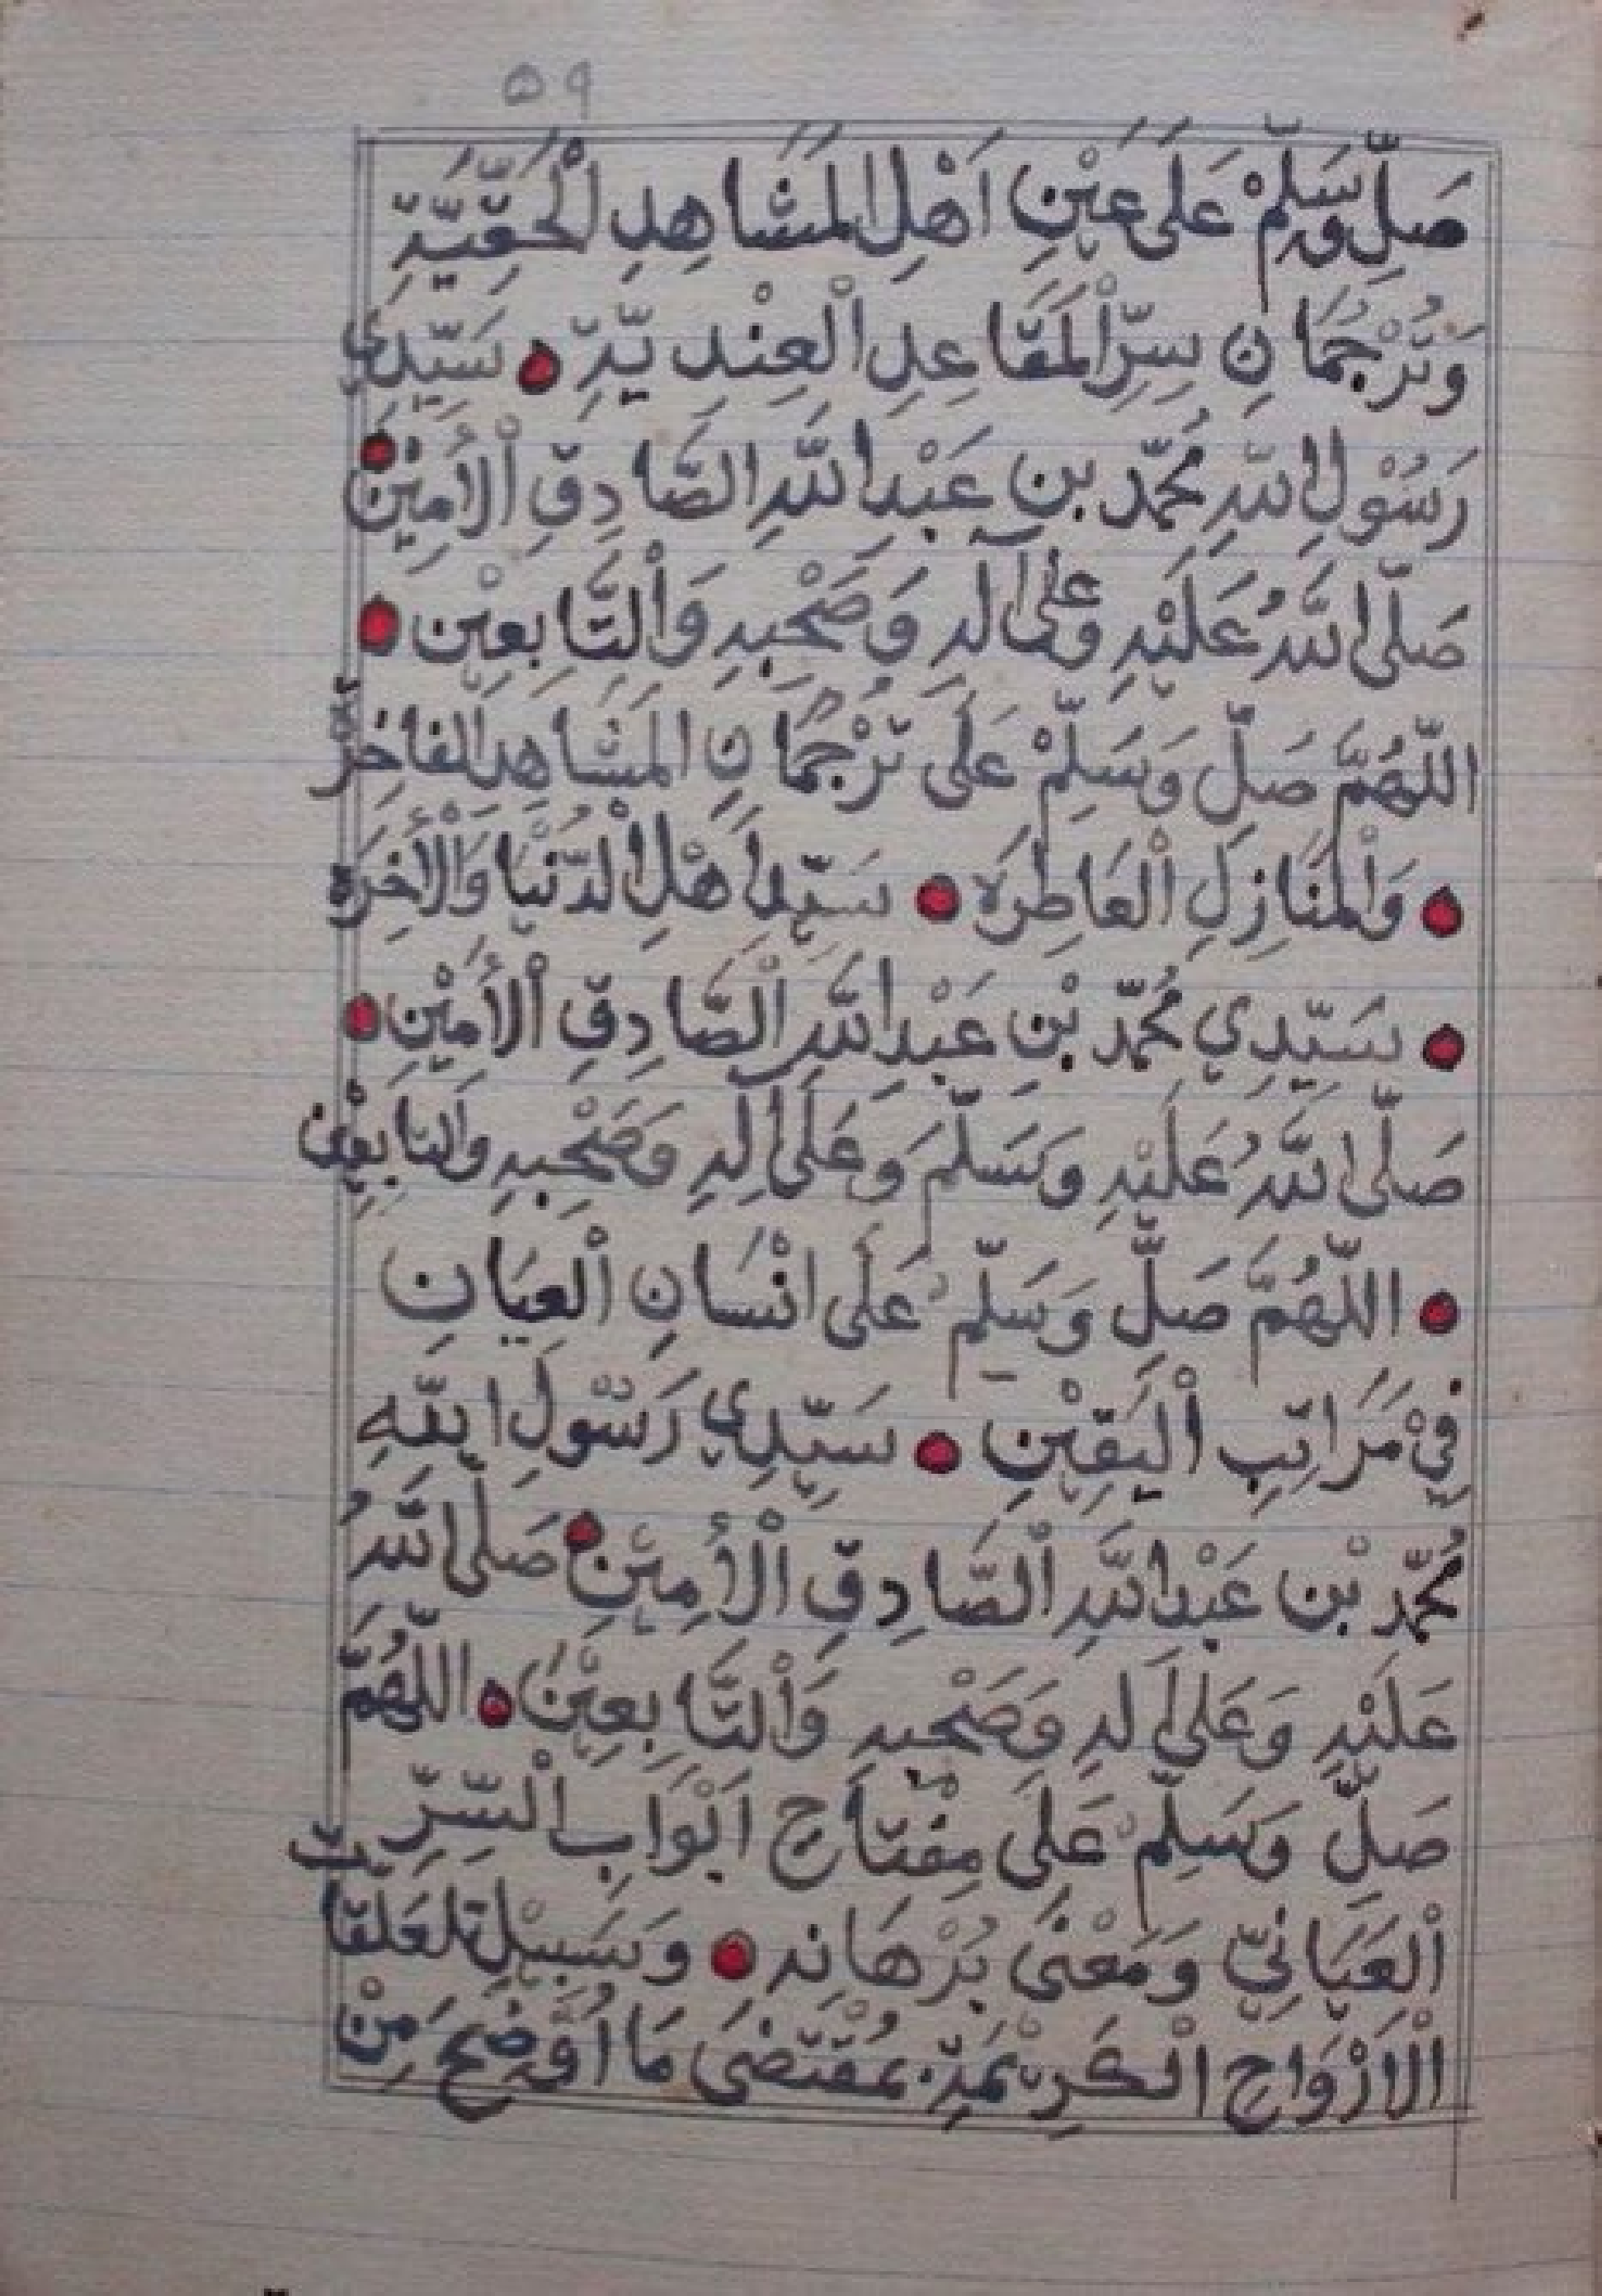 ٥٩
صَلِّ وَسَلِّمْ عَلَى عَيْنِ اَهْلِ الْمَشَاهِدِ الْحَقِّيَّةِ
وَتُرْجُمَانِ سِرِّ الْمَقَاعِدِ الْعِنْدِيَّةِ ● سَيِّدِي
رَسُوْلِ اللَّهِ مُحَمَّد بن عَبْدِ اللَّهِ الصَّادِقِ الْأَمِيْنِ ●
صَلَّى اللَّهُ عَلَيْهِ وَعَلَى آلِهِ وَصَحْبِهِ وَالْتَّابِعِيْن ●
اللَّهُمَّ صَلِّ وَسَلِّمْ عَلَى تَرْجُمَانِ الْمَشَاهِدِ الفَاخِرَة
● وَالْمَنَازِلِ الْعَاطِرَه ● سَيِّدِ اَهْلِ الْدُّنْيَا وَالْأَخِرَة
● سَيِّدِي مُحَمَّد بْنِ عَبْدِ اللَّهِ الْصَّادِقِ الْأَمِيْنِ ●
صَلَّى اللَّهُ عَلَيْهِ وَسَلَّمَ وَعَلَى آلِهِ وَصَحْبِهِ وَالتَابِعِيْن
● اللَّهُمَّ صَلِّ وَسَلِّمْ عَلَى انْسَانِ الْعِيَانِ
فِيْ مَرَاتِبِ الْيَقِيْنِ ● سَيِّدِي رَسُوْلِ اللَّهِ
مُحَمَّد بْن عَبْدِ اللَّهِ الْصَّادِقِ الْأَمِيْنِ ● صَلَّى اللَّهُ
عَلَيْهِ وَعَلَى اَلِهِ وَصَحْبِهِ وَالْتَّابِعِيْنَ ● اللَّهُمَّ
صَلِّ وَسَلِّمْ عَلَى مِفْتَاحِ اَبْوَابِ الْسِّرِّ
الْعَيَانِيِّ وَمَعْنَى بُرْهَانِه ● وَسَبِيْلِ تَعَلُّقَات
الْاَرْوَاحِ الْكَرِيْمَةِ بمُقْتَضَى مَا اُوْضِحَ مِنْ